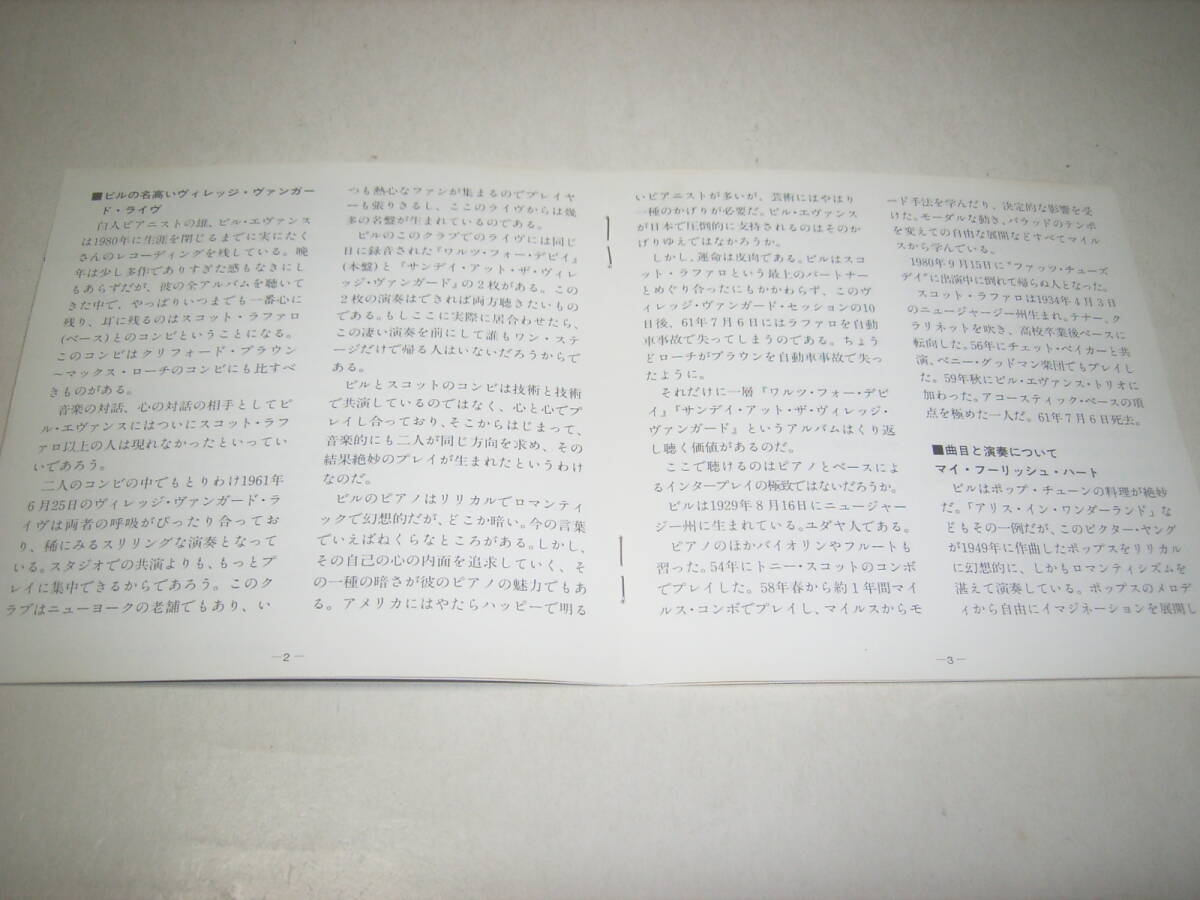 ■ビルの名高いヴィレッジ・ヴァンガー
ド・ライヴ
白人ピアニストの雄、ビル・エヴァンス
は1980年に生涯を閉じるまでに実にたく
さんのレコーディングを残している。晩
年は少し多作でありすぎた感もなきにし
もあらずだが、彼の全アルバムを聴いて
きた中で、やっぱりいつまでも一番心に
残り、耳に残るのはスコット・ラファロ
(ベース)とのコンビということになる。
このコンビはクリフォード・ブラウン
〜マックス・ローチのコンビにも比すべ
きものがある。
音楽の対話、心の対話の相手としてビ
ル・エヴァンスにはついにスコット・ラフ
ァロ以上の人は現れなかったといってい
いであろう。
二人のコンビの中でもとりわけ1961年
6月25日のヴィレッジ・ヴァンガード・ラ
イヴは両者の呼吸がぴったり合ってお
り、稀にみるスリリングな演奏となって
いる。スタジオでの共演よりも、もっとプ
レイに集中できるからであろう。このク
ラブはニューヨークの老舗でもあり、い
つも熱心なファンが集まるのでプレイヤ
ーも張りきるし、ここのライヴからは幾
多の名盤が生まれているのである。
ビルのこのクラブでのライヴには同じ
日に録音された『ワルツ・フォー・デビイ』
(本盤)と『サンデイ・アット・ザ・ヴィレ
ッジ・ヴァンガード』の2枚がある。この
2枚の演奏はできれば両方聴きたいもの
である。もしここに実際に居合わせたら、
この凄い演奏を前にして誰もワン・ステ
ージだけで帰る人はいないだろうからで
ある。
ビルとスコットのコンビは技術と技術
で共演しているのではなく、心と心でプ
レイし合っており、そこからはじまって、
音楽的にも二人が同じ方向を求め、その
結果絶妙のプレイが生まれたというわけ
なのだ。
ビルのピアノはリリカルでロマンティ
ックで幻想的だが、どこか暗い。今の言葉
でいえばねくらなところがある。しかし、
その自己の心の内面を追求していく、そ
の一種の暗さが彼のピアノの魅力でもあ
る。アメリカにはやたらハッピーで明る
―2―
いピアニストが多いが、芸術にはやはり
一種のかげりが必要だ。ビル・エヴァンス
が日本で圧倒的に支持されるのはそのか
げりゆえではなかろうか。
しかし、運命は皮肉である。ビルはスコ
ット・ラファロという最上のパートナー
とめぐり合ったにもかかわらず、このヴ
ィレッジ・ヴァンガード・セッションの10
日後、61年7月6日にはラファロを自動
車事故で失ってしまうのである。ちょう
どローチがブラウンを自動車事故で失っ
たように。
それだけに一層『ワルツ・フォー・デビ
イ』『サンデイ・アット・ザ・ヴィレッジ・
ヴァンガード』というアルバムはくり返
し聴く価値があるのだ。
ここで聴けるのはピアノとベースによ
るインタープレイの極致ではないだろうか。
ビルは1929年8月16日にニュージャー
ジー州に生まれている。ユダヤ人である。
ピアノのほかバイオリンやフルートも
習った。54年にトニー・スコットのコンボ
でプレイした。58年春から約1年間マイ
ルス・コンボでプレイし、マイルスからモ
ード手法を学んだり、決定的な影響を受
けた。モーダルな動き、バラッドのテンポ
を変えての自由な展開などすべてマイル
スから学んでいる。
1980年9月15日に"ファッツ・チューズ
デイ"に出演中に倒れて帰らぬ人となった。
スコット・ラファロは1934年4月3日
のニュージャージー州生まれ。テナー、ク
ラリネットを吹き、高校卒業後ベースに
転向した。56年にチェット・ベイカーと共
演、ベニー・グッドマン楽団でもプレイし
た。59年秋にビル・エヴァンス・トリオに
加わった。アコースティック・ベースの頂
点を極めた一人だ。61年7月6日死去。
■曲目と演奏について
マイ・フーリッシュ・ハート
ビルはポップ・チューンの料理が絶妙
だ。「アリス・イン・ワンダーランド」な
どもその一例だが、このビクター・ヤング
が1949年に作曲したポップスをリリカル
に幻想的に、しかもロマンティシズムを
湛えて演奏している。ポップスのメロデ
ィから自由にイマジネーションを展開し
―3―